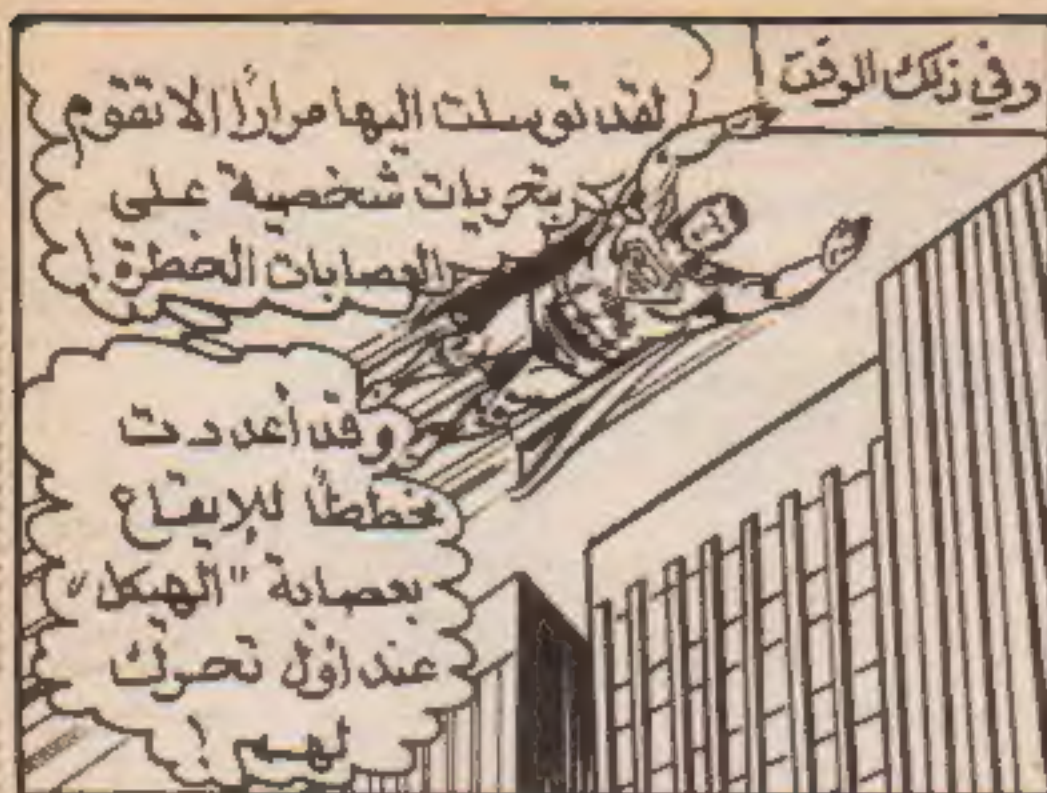 وفي ذلك الوقت
لقد توسلت اليها مرارًا الا تقوم
بتحريات شخصية على
العصابات الخطرة!
وقد أعددت
خططًا للإيقاع
بعصابة "الهيكل"
عند أول تحرك
لهم!